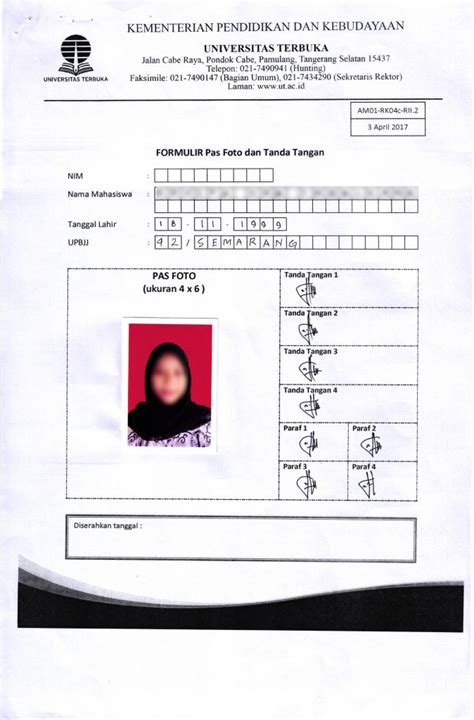 KEMENTERIAN PENDIDIKAN DAN KEBUDAYAAN
UNIVERSITAS TERBUKA
Jalan Cabe Raya, Pondok Cabe, Pamulang, Tangerang Selatan 15437
Telepon: 021-7490941 (Hunting)
Faksimile: 021-7490147 (Bagian Umum), 021-7434290 (Sekretaris Rektor)
Laman: www.ut.ac.id
UNIVERSITAS TERBUKA
AM01-RK04c-RII.2
3 April 2017
FORMULIR Pas Foto dan Tanda Tangan
NIM :
Nama Mahasiswa :
Tanggal Lahir : 18 - 11 - 1999
UPBJJ : 42/SEMARANG
PAS FOTO
(ukuran 4 x 6 )
Tanda Tangan 1
Tanda Tangan 2
Tanda Tangan 3
Tanda Tangan 4
Paraf 1 Paraf 2
Paraf 3 Paraf 4
Diserahkan tanggal :